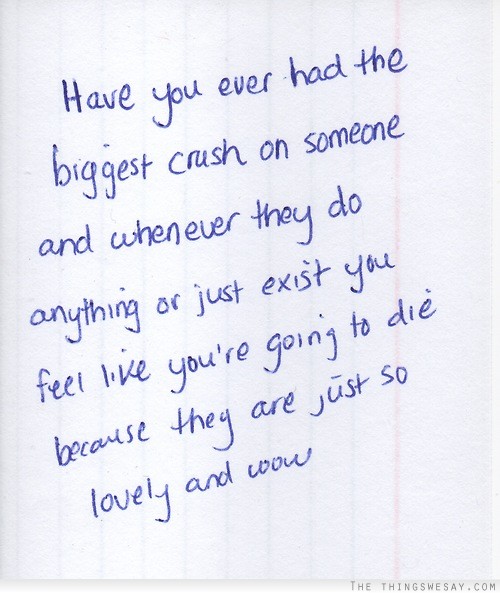 Have you ever had the
biggest crush on someone
and whenever they do
anything or just exist you
feel like you're going to die
because they are just so
lovely and woow
THE THINGSWESAY.COM